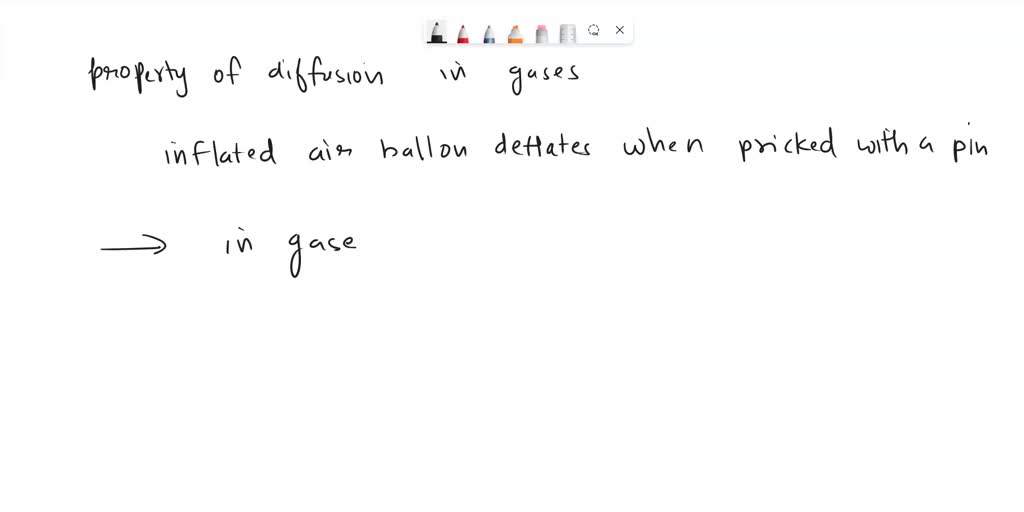 property of diffusion in gases
inflated air ballon deflates when pricked with a pin
→ in gase